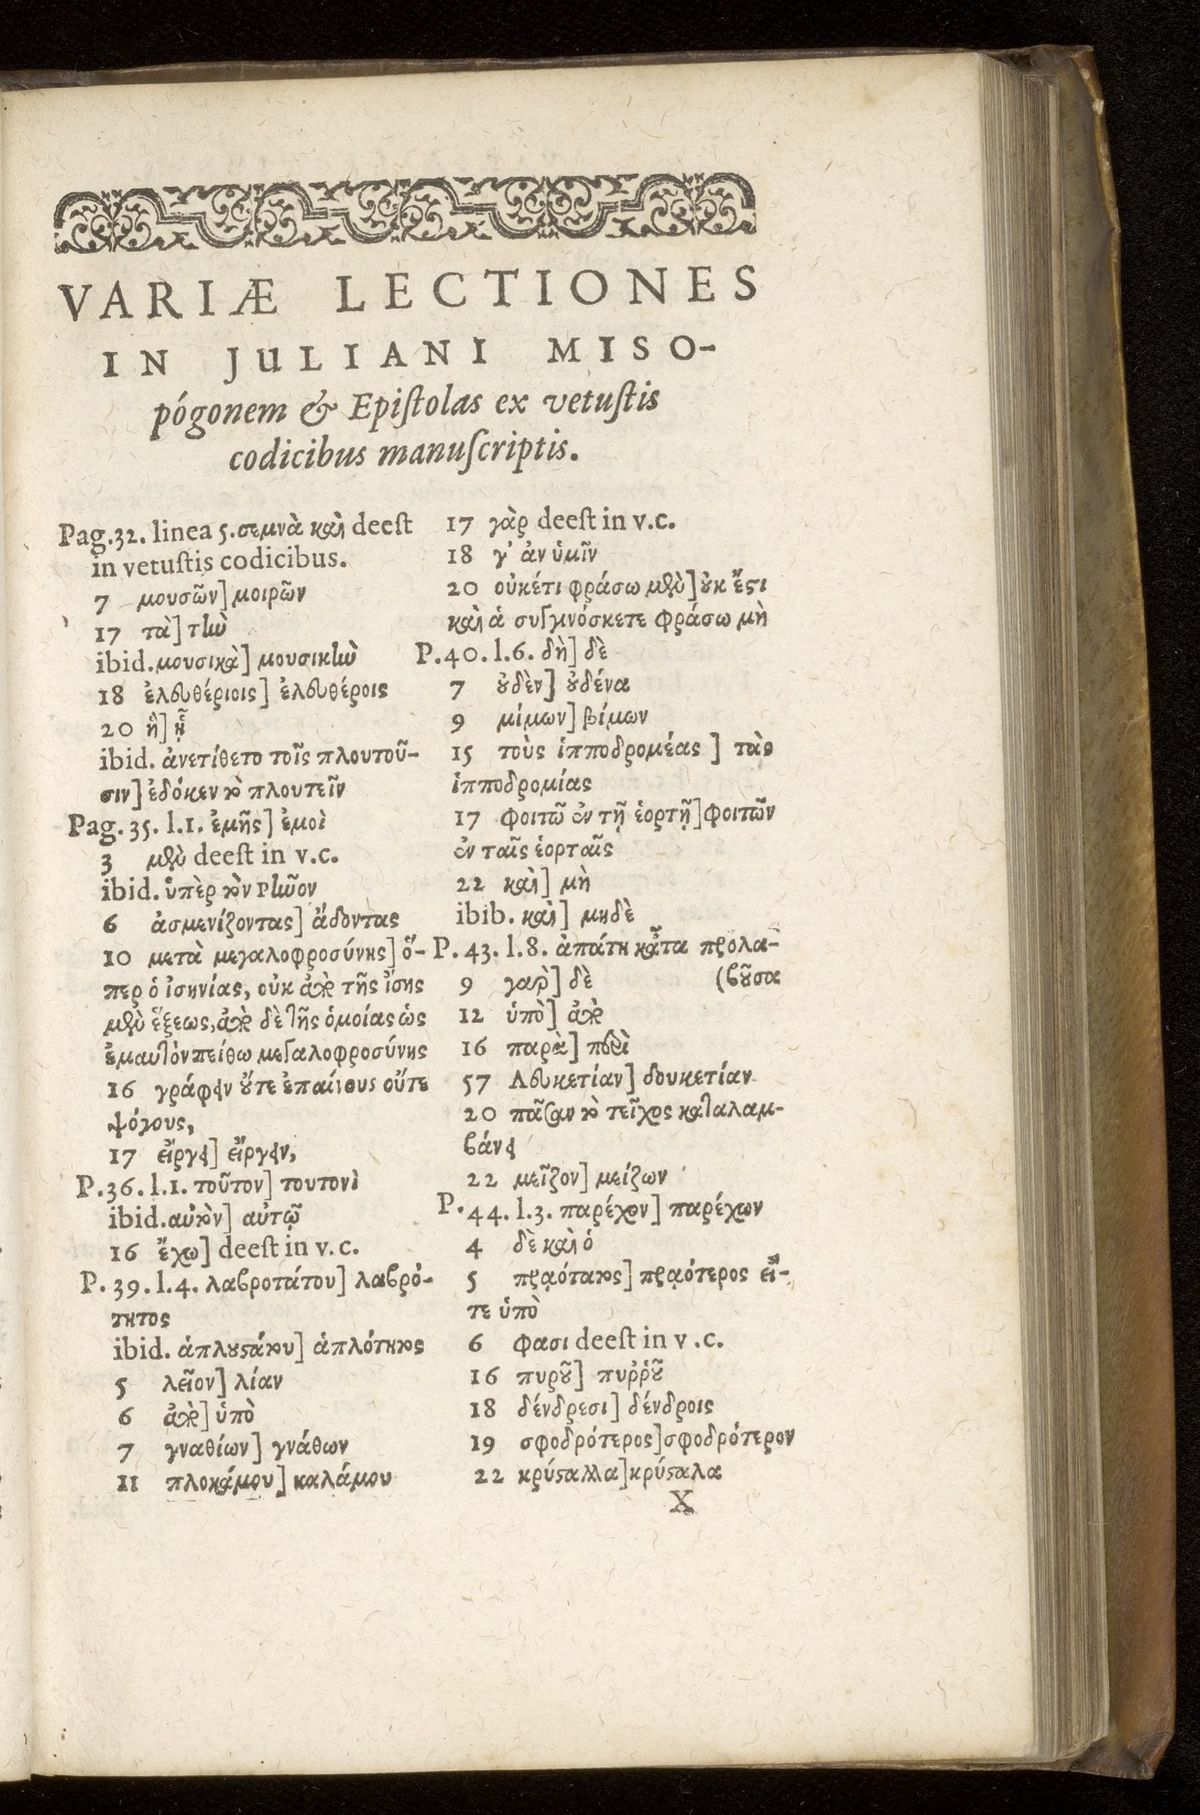 VARIÆ LECTIONES
IN JULIANI MISO-
pógonem & Epiſtolas ex vetuſtis
codicibus manuſcriptis.
Pag.32. linea 5. σεμνὰ καὶ deeſt
in vetuſtis codicibus.
7 μουσῶν] μοιρῶν
17 τὰ] τὴν
ibid. μουσικὰ] μουσικὴν
18 ἐλευθέριοις] ἐλευθέροις
20 ἢ] ᾖ
ibid. ἀνετίθετο τοῖς πλουτοῦ-
σιν] ἐδόκεν τὸ πλουτεῖν
Pag. 35. l.1. ἐμῆς] ἐμοὶ
3 μὲν deeſt in v.c.
ibid. ὑπὲρ τὸν Ρῆνον
6 ἀσμενίζοντας] ἄδοντας
10 μετὰ μεγαλοφροσύνης] ὅ-
περ ὁ ἰσηνίας, οὐκ ἀπὸ τῆς ἴσης
μὲν ἕξεως, ἀπὸ δὲ τῆς ὁμοίας ὡς
ἐμαυτὸν πείθω μεγαλοφροσύνης
16 γράφειν οὔτε ἐπαίνους οὔτε
ψόγους,
17 εἴργει] εἴργειν,
P.36. l.1. τοῦτον] τουτονὶ
ibid. αὐτὸν] αὐτῷ
16 ἔχω] deeſt in v.c.
P. 39. l.4. λαβροτάτου] λαβρό-
τητος
ibid. ἁπλουστάτου] ἁπλότητος
5 λεῖον] λίαν
6 ἀπὸ] ὑπὸ
7 γναθίων] γνάθων
11 πλοκάμου] καλάμου
17 γὰρ deeſt in v.c.
18 γ' ἀν ὑμῖν
20 οὐκέτι φράσω μὲν] οὐκ ἔστι
καὶ ἁ συγγινόσκετε φράσω μὴ
P.40. l.6. δὴ] δὲ
7 οὐδὲν] οὐδένα
9 μίμων] βίμων
15 τοὺς ἱπποδρομέας] τὰς
ἱπποδρομίας
17 φοιτῶ ἐν τῇ ἑορτῇ] φοιτῶν
ἐν ταῖς ἑορταῖς
22 καὶ] μὴ
ibib. καὶ] μηδὲ
P. 43. l.8. ἀπάτη κᾆτα προλα-
9 γαρ] δὲ (βοῦσα
12 ὑπὸ] ἀπὸ
16 παρὰ] περὶ
57 Λευκετίαν] δουκετίαν
20 πᾶσαν τὸ τεῖχος καταλαμ-
βάνει
22 μεῖζον] μείζων
P. 44. l.3. παρέχον] παρέχων
4 δὲ καὶ ὁ
5 πρᾳότατος] πρᾳότερος εἴ-
τε ὑπὸ
6 φασι deeſt in v.c.
16 πυροῦ] πυῤῥοῦ
18 δένδρεσι] δένδροις
19 σφοδρότερος] σφοδρότερον
22 κρύσταλλα] κρύσταλα
X